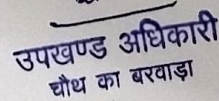 उपखण्ड अधिकारी
चौथ का बरवाड़ा